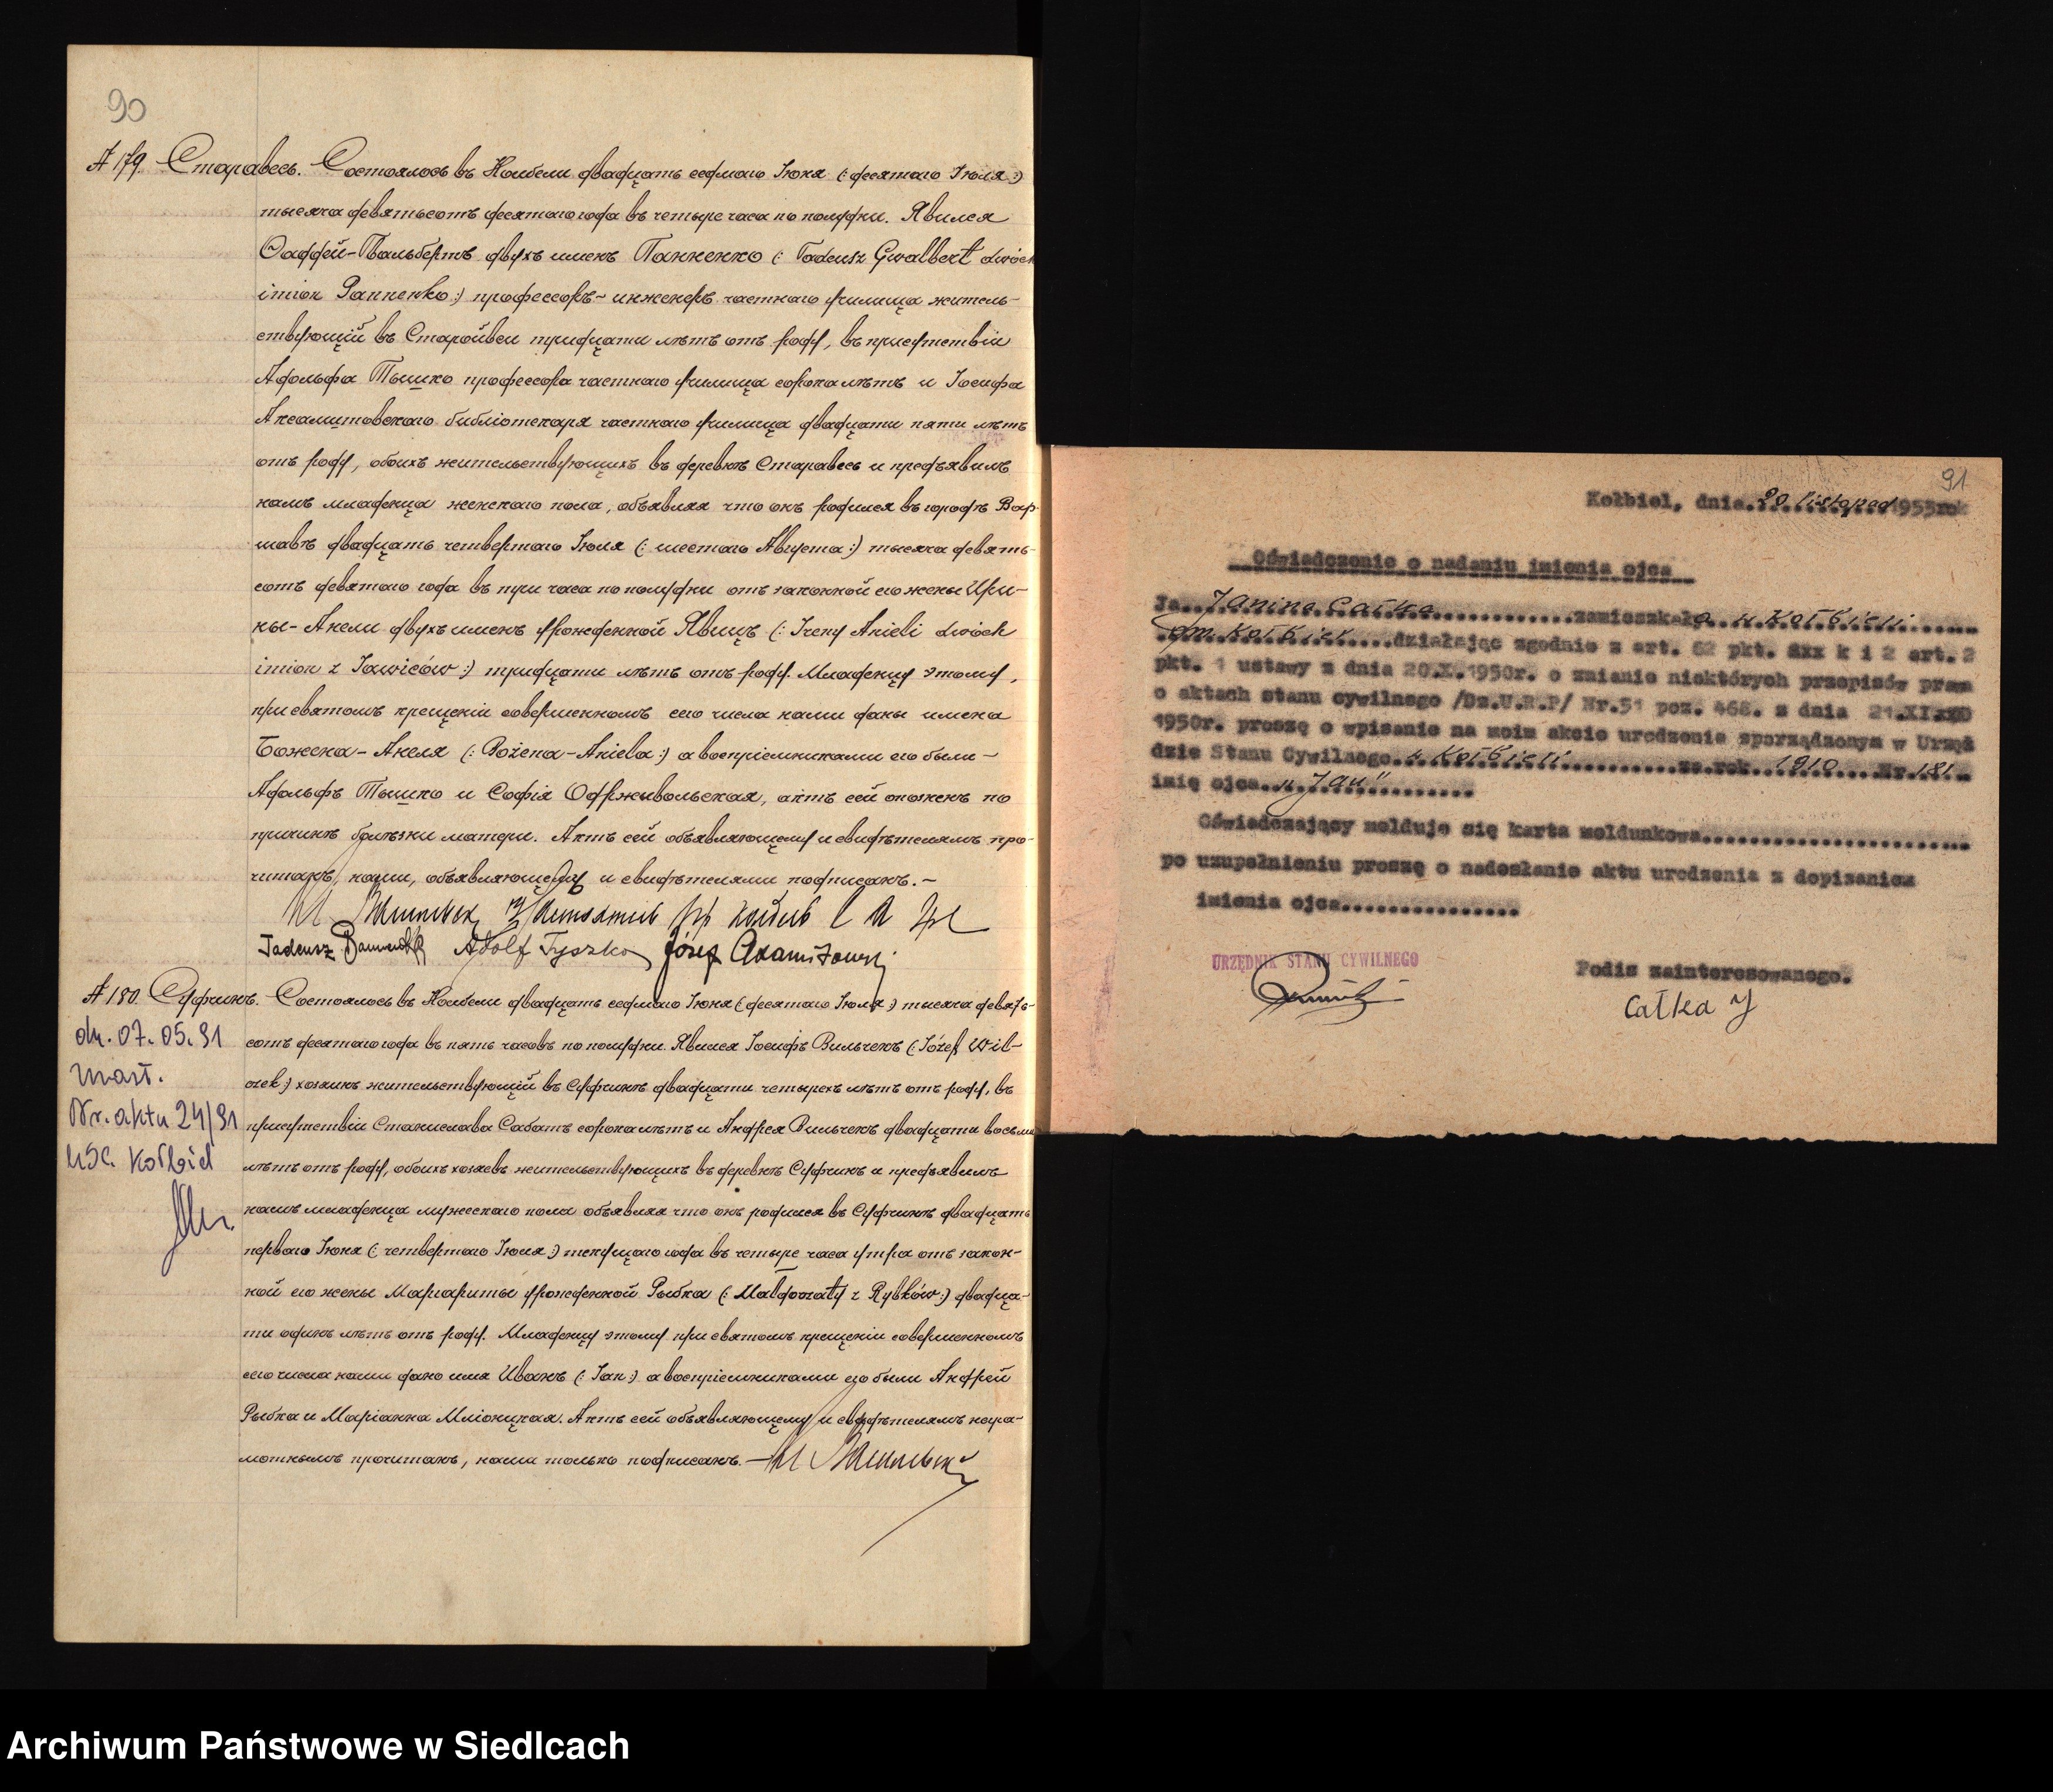 90
№ 179. Старавесь. Состоялось въ Колбели двадцать седмаго Іюня (: десятаго Іюля :)
тысяча девятьсотъ десятаго года въ четыре часа по полудни. Явился
Фаддей-Гвальбертъ двухъ именъ Панненко (: Tadeusz Gwalbert dwóch
imion Pannenko :) профессоръ-инженеръ частнаго училища житель-
ствующій въ Старойвси тридцати лѣтъ отъ роду, въ присутствіи
Адольфа Тышко профессора частнаго училища сорока лѣтъ и Іосифа
Аксамитовскаго библіотекаря частнаго училища двадцати пяти лѣтъ
отъ роду, обоихъ жительствующихъ въ деревнѣ Старавесь и предъявилъ
намъ младенца женскаго пола, объявляя что онъ родился въ городѣ Вар-
шавѣ двадцать четвертаго Іюля (: шестаго Августа :) тысяча девять-
сотъ девятаго года въ три часа по полудни отъ законной его жены Ири-
ны-Анели двухъ именъ урожденной Явицъ (: Ireny Anieli dwóch
imion z Jawiców :) тридцати лѣтъ отъ роду. Младенцу этому,
при святомъ крещеніи совершенномъ сего числа нами даны имена
Божена-Анеля (: Bożena-Aniela :) а воспріемниками его были -
Адольфъ Тышко и Софія Одрживольская, актъ сей опозненъ по
причинѣ болѣзни матери. Актъ сей объявляющему и свидѣтелямъ про-
читанъ, нами, объявляющему и свидѣтелями подписанъ. -
Tadeusz Pannenko Adolf Tyszko Józef Axamitowski
№ 180. Суфчинъ. Состоялось въ Колбели двадцать седмаго Іюня (: десятаго Іюля :) тысяча девять-
сотъ десятаго года въ пять часовъ по полудни. Явился Іосифъ Вильчекъ (: Józef Wil-
czek :) хозяинъ жительствующій въ Суфчинѣ двадцати четырехъ лѣтъ отъ роду, въ
присутствіи Станислава Сабатъ сорока лѣтъ и Андрея Вильчекъ двадцати восьми
лѣтъ отъ роду, обоихъ хозяевъ жительствующихъ въ деревнѣ Суфчинъ и предъявилъ
намъ младенца мужескаго пола объявляя что онъ родился въ Суфчинѣ двадцать
перваго Іюня (: четвертаго Іюля :) текущаго года въ четыре часа утра отъ закон-
ной его жены Маргариты урожденной Рыбка (: Małgorzaty z Rybków :) двадца-
ти одинъ лѣтъ отъ роду. Младенцу этому при святомъ крещеніи совершенномъ
сего числа нами дано имя Иванъ (: Jan :) а воспріемниками его были Андрей
Рыбка и Маріанна Мліоницкая. Актъ сей объявляющему и свидѣтелямъ негра-
мотнымъ прочитанъ, нами только подписанъ. -
dn. 07.05.91
zmarł.
Nr. aktu 24/91
USC. Kołbiel
91
Kołbiel, dnia..20 listopad 1953rok
Oświadczenie o nadaniu imienia ojca
Ja..Janina Całka..............zamieszkała..w Kołbieli......
gm. Kołbiel.....działając zgodnie z art. 62 pkt. xxx k i 2 art. 2
pkt. 1 ustawy z dnia 20.X.1950r. o zmianie niektórych przepisów praw
o aktach stanu cywilnego /Dz.U.R.P/ Nr.51 poz. 468. z dnia 21.XI.
1950r. proszę o wpisanie na moim akcie urodzenia sporządzonym w Urzę
dzie Stanu Cywilnego..w Kołbieli...........za rok..1910....Nr.181..
imię ojca.."Jan"..........
Oświadczający melduje się karta meldunkowa........................
po uzupełnieniu proszę o nadesłanie aktu urodzenia z dopisaniem
imienia ojca................
URZĘDNIK STANU CYWILNEGO
Podis zainteresowanego.
Całka J
Archiwum Państwowe w Siedlcach